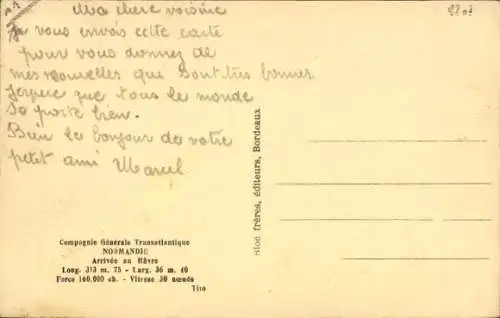 Ma chere voisine
je vous envois cette carte
pour vous donnez de
mes nouvelles que sont très bonnes
J'espère que tous le monde
se porte bien.
Bien le bonjour de votre
petit ami Marcel
Compagnie Générale Transatlantique
NORMANDIE
Arrivée au Hâvre
Long. 313 m. 75 - Larg. 36 m. 40
Force 160.000 ch. - Vitesse 30 nœuds
Tito
Bloc frères, éditeurs, Bordeaux